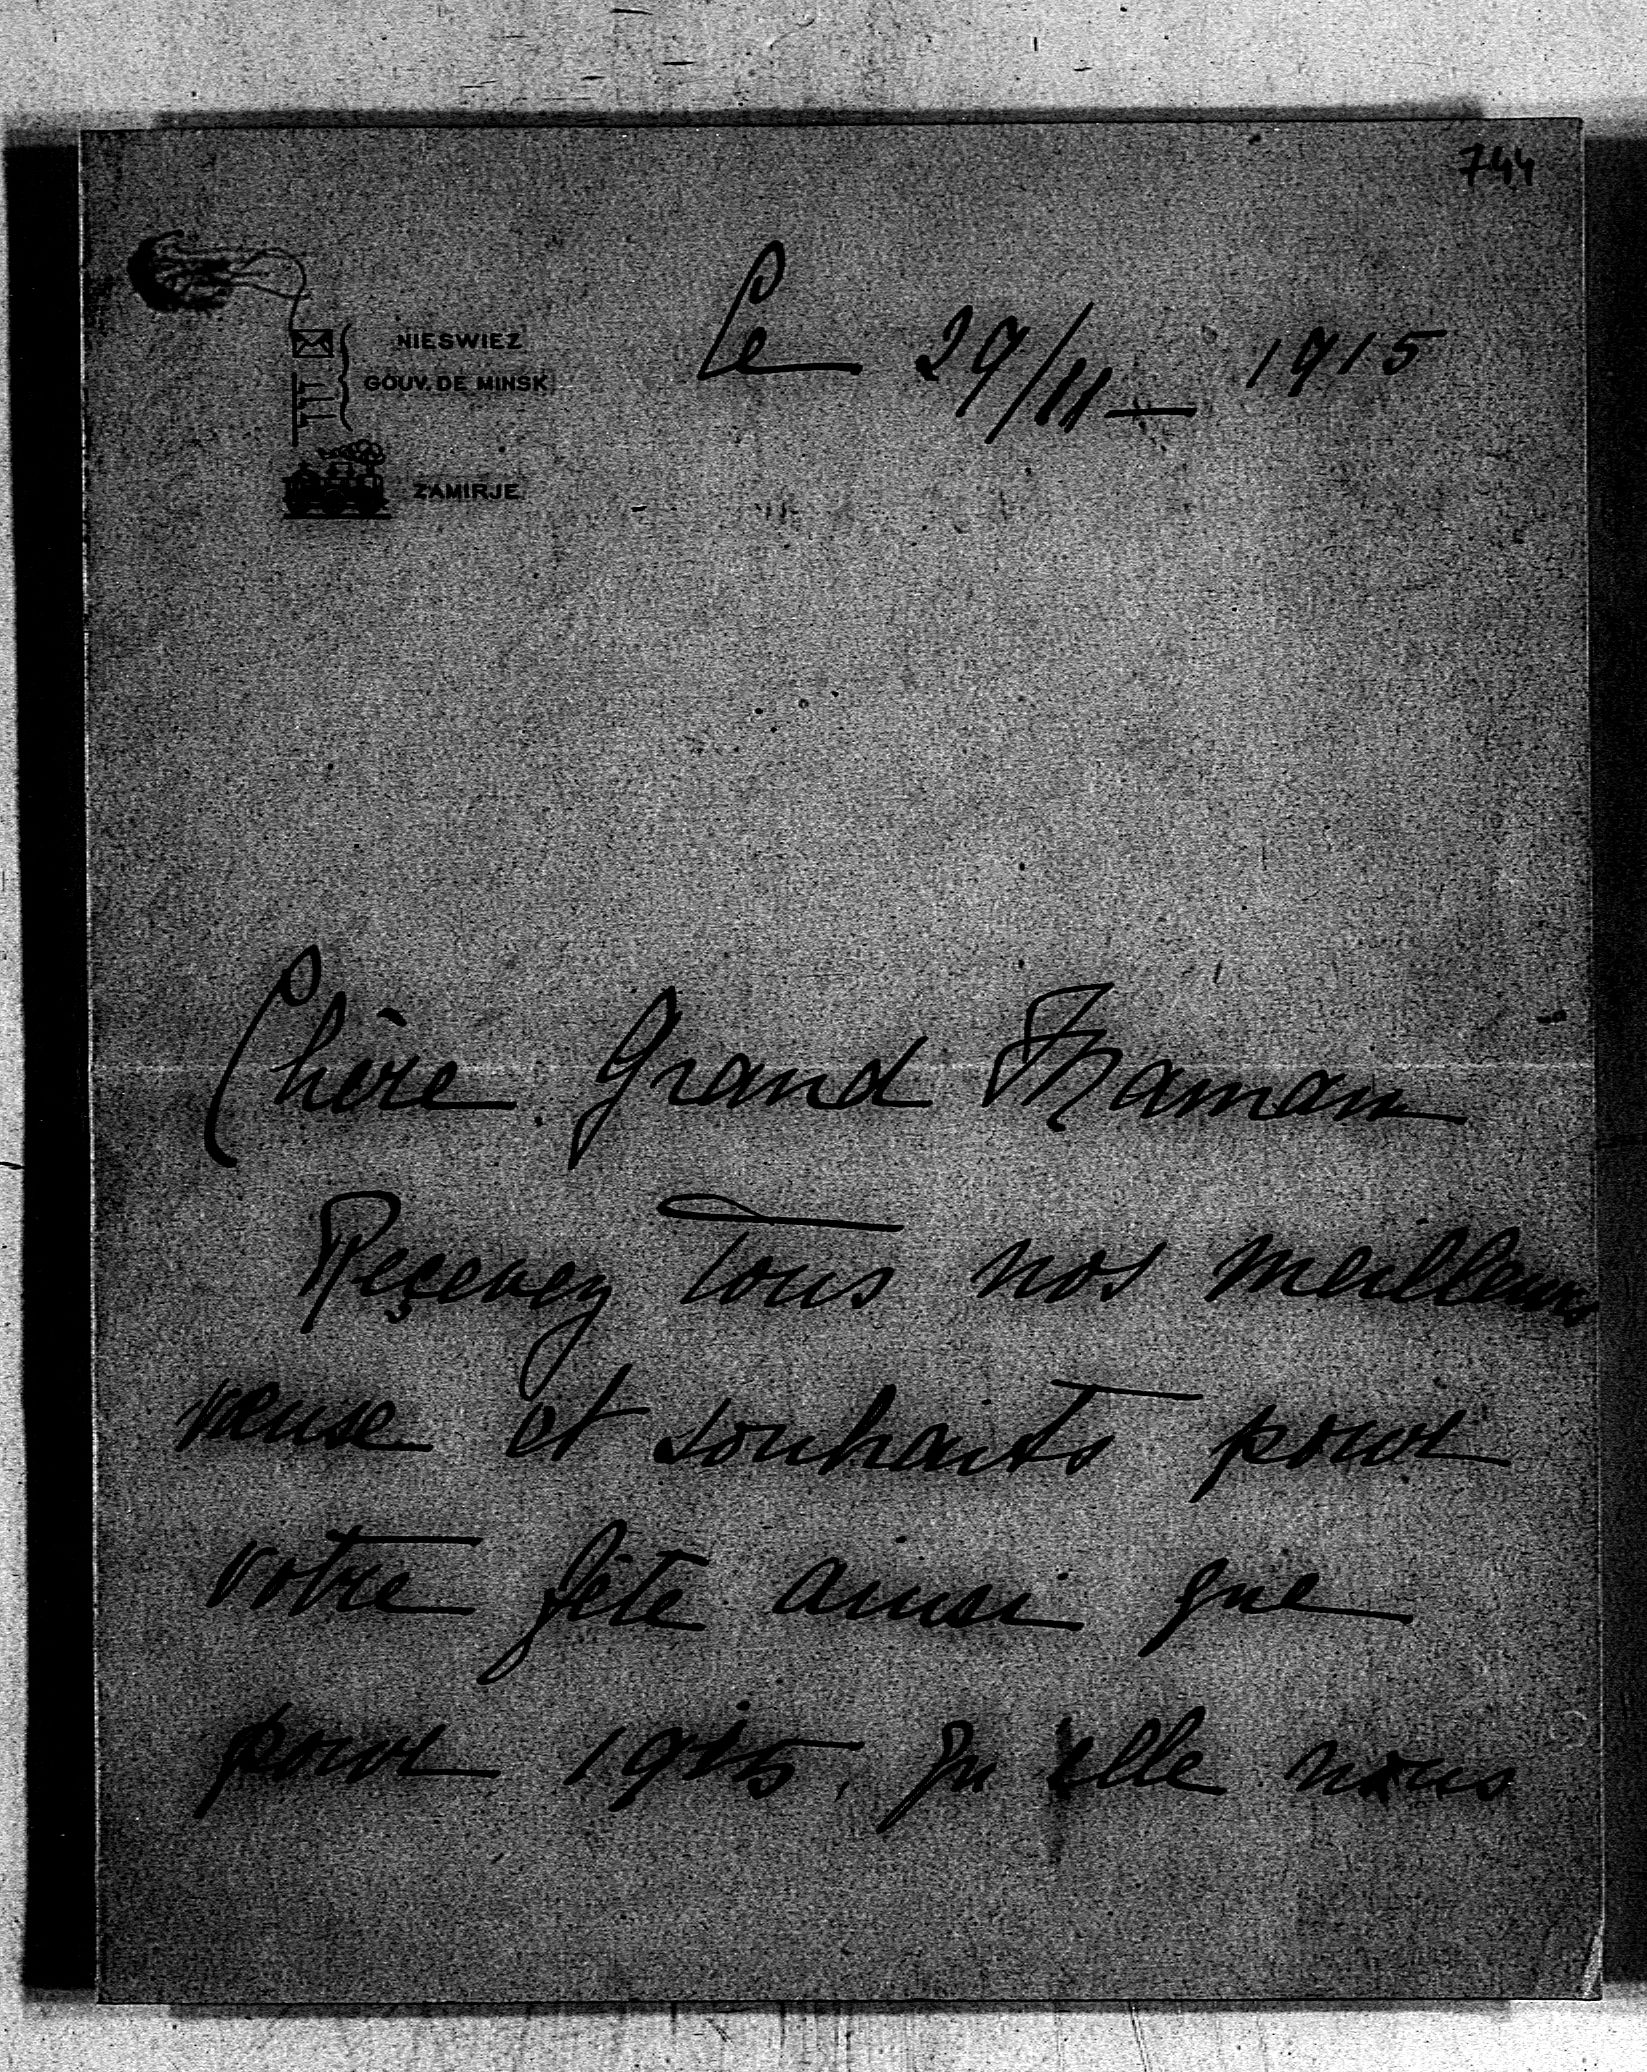 744
NIESWIEZ
GOUV. DE MINSK
Le 29/11 — 1915
ZAMIRJE
Chère Grand Maman
Reçevez tous nos meilleurs
vœuse et souhaits pour
votre fête ainsi que
pour 1915. qu'elle nous